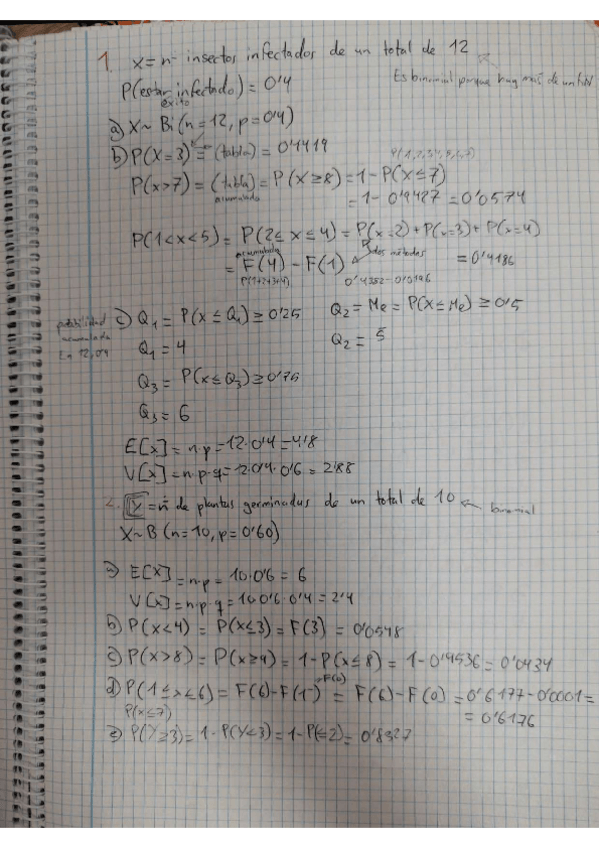 1. X = nº insectos infectados de un total de 12
Es binomial porque hay más de un
P(estar infectado) = 0'4
éxito
a) X ~ Bi (n = 12, p = 0'4)
b) P(X = 3) = (tabla) = 0'1419
P(1,2,3,4,5,6,7)
P(x > 7) = (tabla) = P(X ≥ 8) = 1 - P(X ≤ 7)
acumulada
= 1 - 0'9427 = 0'0574
P(1 < x < 5) = P(2 ≤ x ≤ 4) = P(x = 2) + P(x = 3) + P(x = 4)
acumulada
dos métodos
= F(4) - F(1)
= 0'4186
P(1+2+3+4)
0'4382 - 0'0196
probabilidad
acumulada
En 12, 0'4
c) Q1 = P(X ≤ Q1) ≥ 0'25 Q2 = Me = P(X ≤ Me) ≥ 0'5
Q1 = 4 Q2 = 5
Q3 = P(X ≤ Q3) ≥ 0'75
Q3 = 6
E[x] = n·p = 12·0'4 = 4'8
V[x] = n·p·q = 12·0'4·0'6 = 2'88
2. X = nº de plantas germinadas de un total de 10 ← binomial
X ~ B (n = 10, p = 0'60)
a) E[X] = n·p = 10·0'6 = 6
V[x] = n·p·q = 10·0'6·0'4 = 2'4
b) P(X < 4) = P(X ≤ 3) = F(3) = 0'0548
c) P(X > 8) = P(X ≥ 9) = 1 - P(X ≤ 8) = 1 - 0'9536 = 0'0434
F(0)
d) P(1 ≤ x ≤ 6) = F(6) - F(1⁻) = F(6) - F(0) = 0'6177 - 0'0001 =
P(X ≤ 7)
= 0'6176
e) P(Y ≥ 3) = 1 - P(Y < 3) = 1 - P(≤ 2) = 0'8327